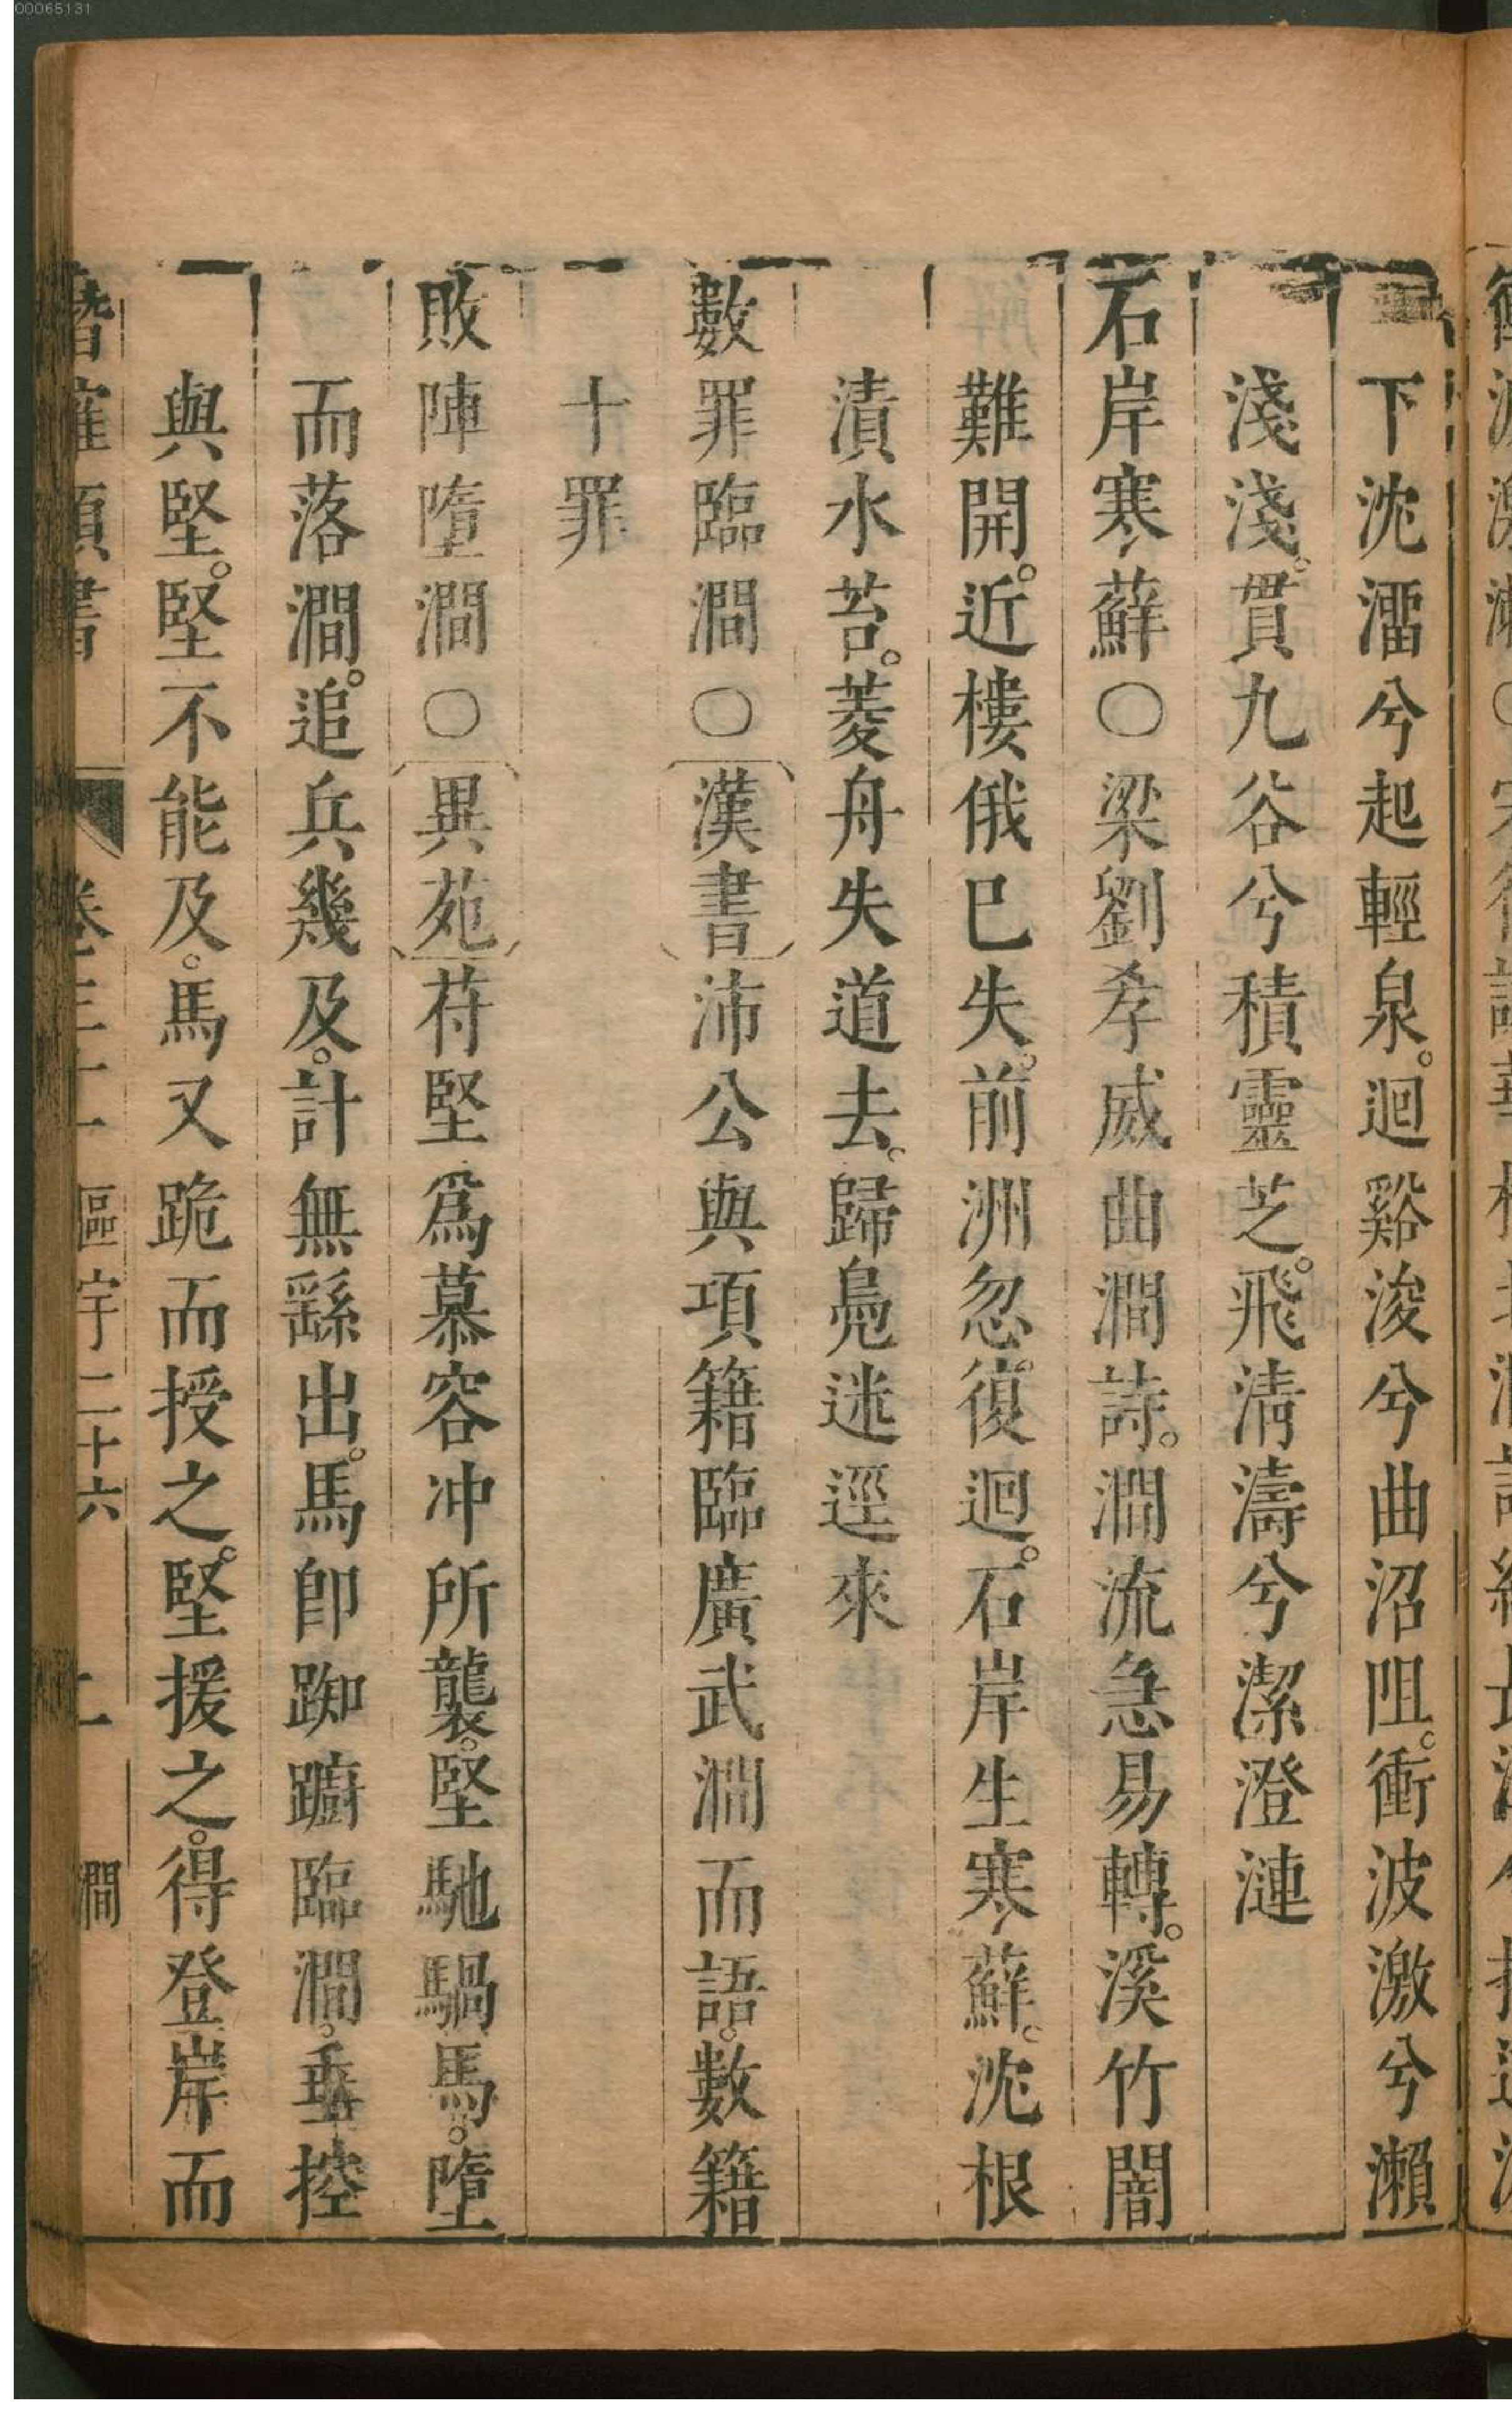 00065131
下沈澑兮起輕泉。迴谿浚兮曲沼阻。衝波激兮瀨
淺淺。貫九谷兮積靈芝。飛清濤兮潔澄漣
石岸寒蘚○梁劉孝威曲澗詩。澗流急易轉。溪竹闇
難開。近樓俄巳失。前洲忽復迴。石岸生寒蘚。沈根
漬水苔。菱舟失道去。歸鳧迷逕來
數罪臨澗○〔漢書〕沛公與項籍臨廣武澗而語。數籍
十罪
敗陣墮澗○〔異苑〕苻堅爲慕容冲所襲。堅馳騧馬。墮
而落澗。追兵幾及。計無繇出。馬卽踟躕臨澗。垂控
與堅。堅不能及。馬又跪而授之。堅援之。得登岸而
卷三十一 區宇二十六 二 澗